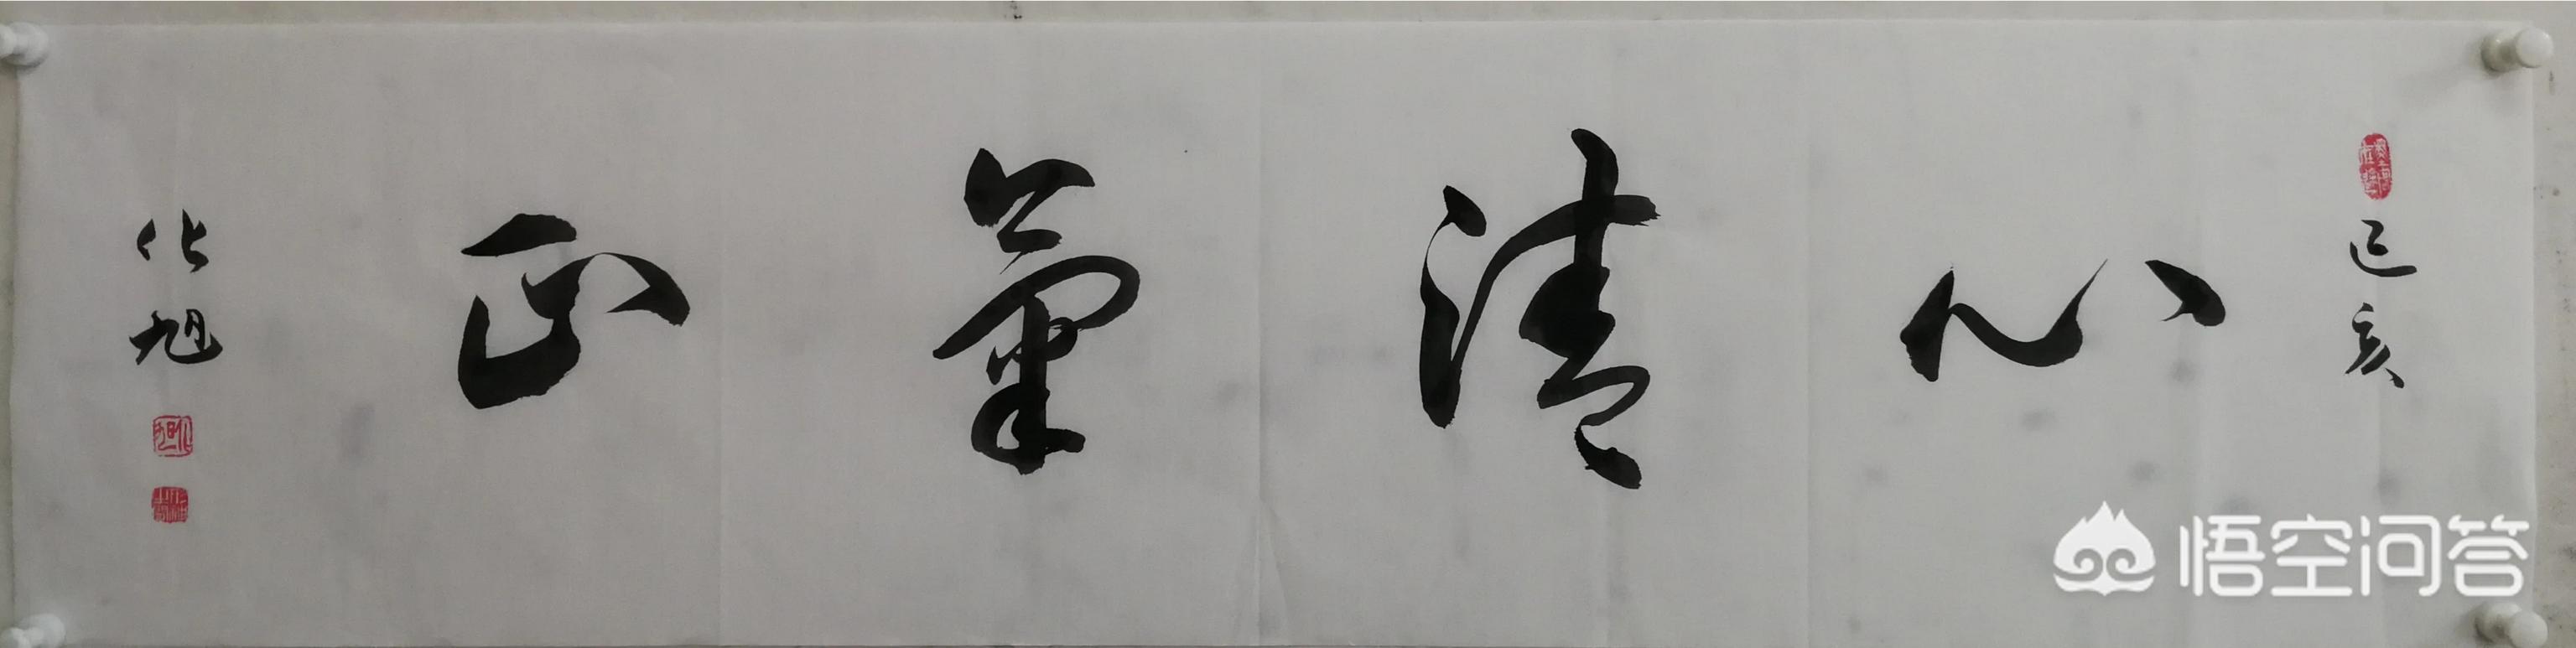 己亥
心清氣正
化旭
悟空问答